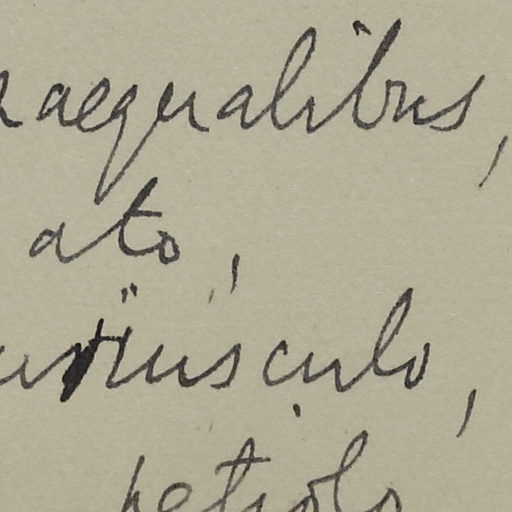 aequalibus,
ato,
iusculo,
petiolo